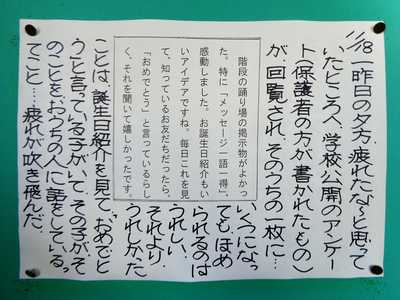 11/18 一昨日の夕方、疲れたな〜と思って
いたところへ、学校公開のアンケー
ト(保護者の方が書かれたもの)
が、回覧され、そのうちの一枚に…
階段の踊り場の掲示物がよかっ
た。特に「メッセージ一語一得」、
感動しました。お誕生日紹介もい
いアイデアですね。毎日これを見
て、知っているお友だちだったら、
「おめでとう」と言っているらし
く、それを聞いて嬉しかったです。
いくつになっ
ても、ほめ
られるのは
うれしい。
それより、
うれしかた
ことは、誕生日紹介を見て、"おめでと
う"と言っている子がいて、その子が、そ
のことをおうちの人に話をしているっ
てこと…。疲れが吹き飛んだ。